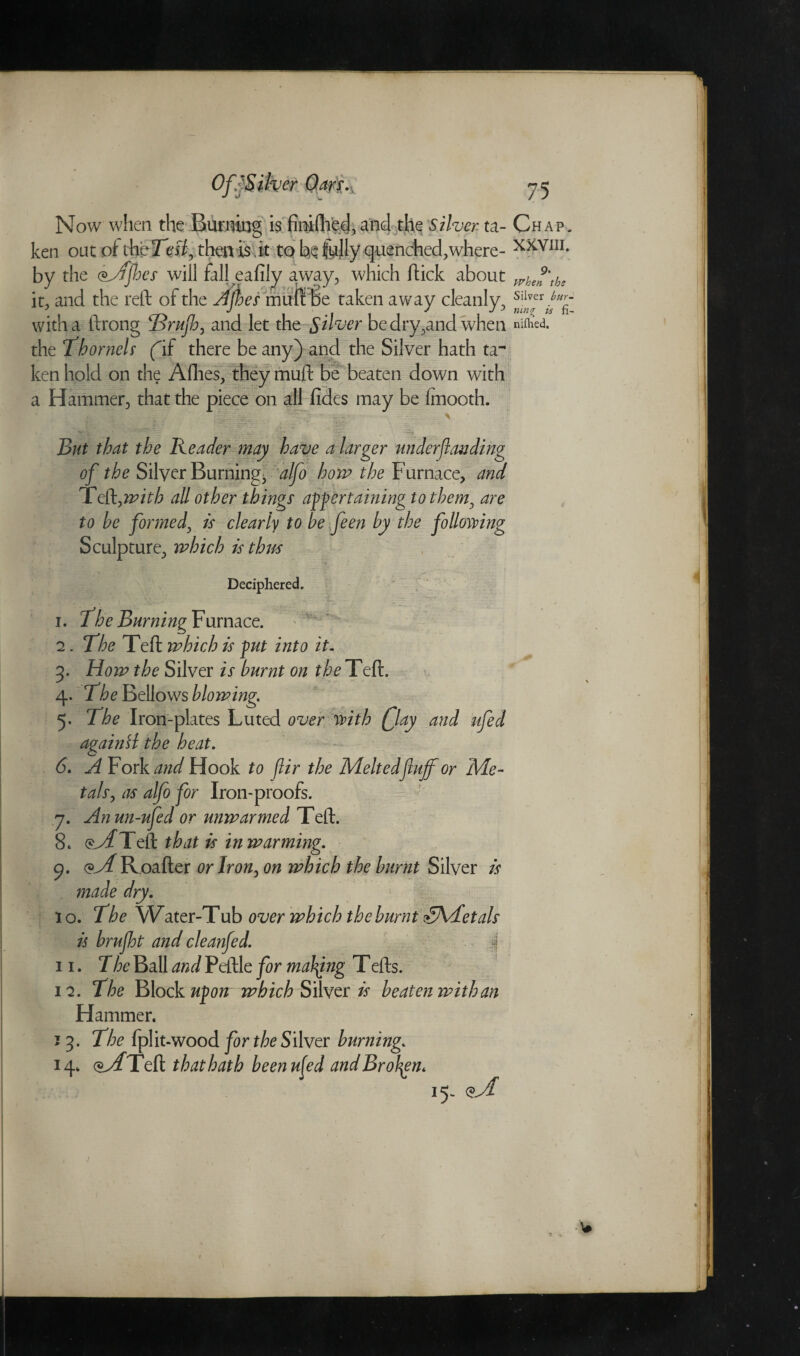 Of Silver Oars.
75
Now when the Burning is finiſhed, and the Silver ta-
ken out of the Teſt, then is it to be fully quenched, where-
by the Aſhes will fall eaſily away, which ſtick about
it, and the reſt of the Aſhes muſt be taken away cleanly,
with a ſtrong Bruſh, and let the Silver be dry, and when
the Thornels (if there be any) and the Silver hath ta-
ken hold on the Aſhes, they muſt be beaten down with
a Hammer, that the piece on all ſides may be ſmooth.
Chap.
XXVIII.
9.
When the
Silver bur-
ning is fi-
niſhed.
But that the Reader may have a larger underſtanding
of the Silver Burning, alſo how the Furnace, and
Teſt, with all other things appertaining to them, are
to be formed, is clearly to be ſeen by the following
Sculpture, which is thus
Deciphered.
1. The Burning Furnace.
2. The Teſt which is put into it.
3. How the Silver is burnt on the Teſt.
4. The Bellows blowing.
5. The Iron-plates Luted over with Clay and uſed
againſt the heat.
6. A Fork and Hook to ſtir the Melted ſtuff or Me-
tals, as alſo for Iron-proofs.
7. An un-uſed or unwarmed Teſt.
8. A Teſt that is in warming.
9. A Roaſter or Iron, on which the burnt Silver is
made dry.
10. The Water-Tub over which the burnt Metals
is bruſht and cleanſed.
11. The Ball and Peſtle for making Teſts.
12. The Block upon which Silver is beaten with an
Hammer.
13. The ſplit-wood for the Silver burning.
14. A Teſt that hath been uſed and Broken.
15. A